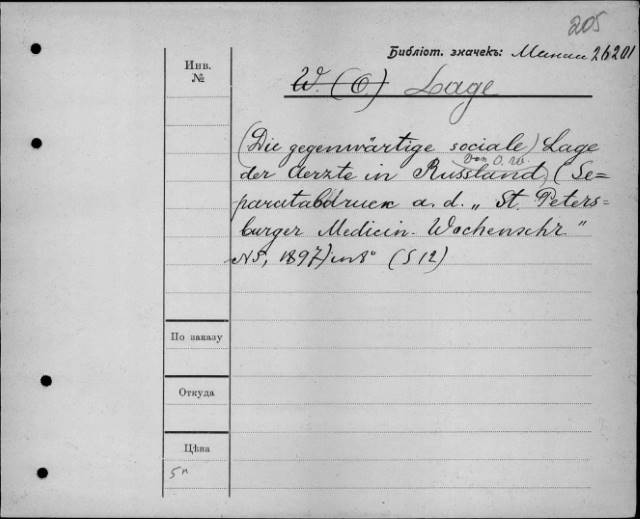 205
Библіот. значекъ: 26201
Инв.
№
W. (O.) Lage
(Die gegenwärtige sociale) Lage
von O. W.
der Aerzte in Russland, (Se=
paratabdruck a. d. „ St. Peters-
burger Medicin. Wochenschr. "
N 5, 1897) in 8° (S 12)
По заказу
Откуда
Цѣна